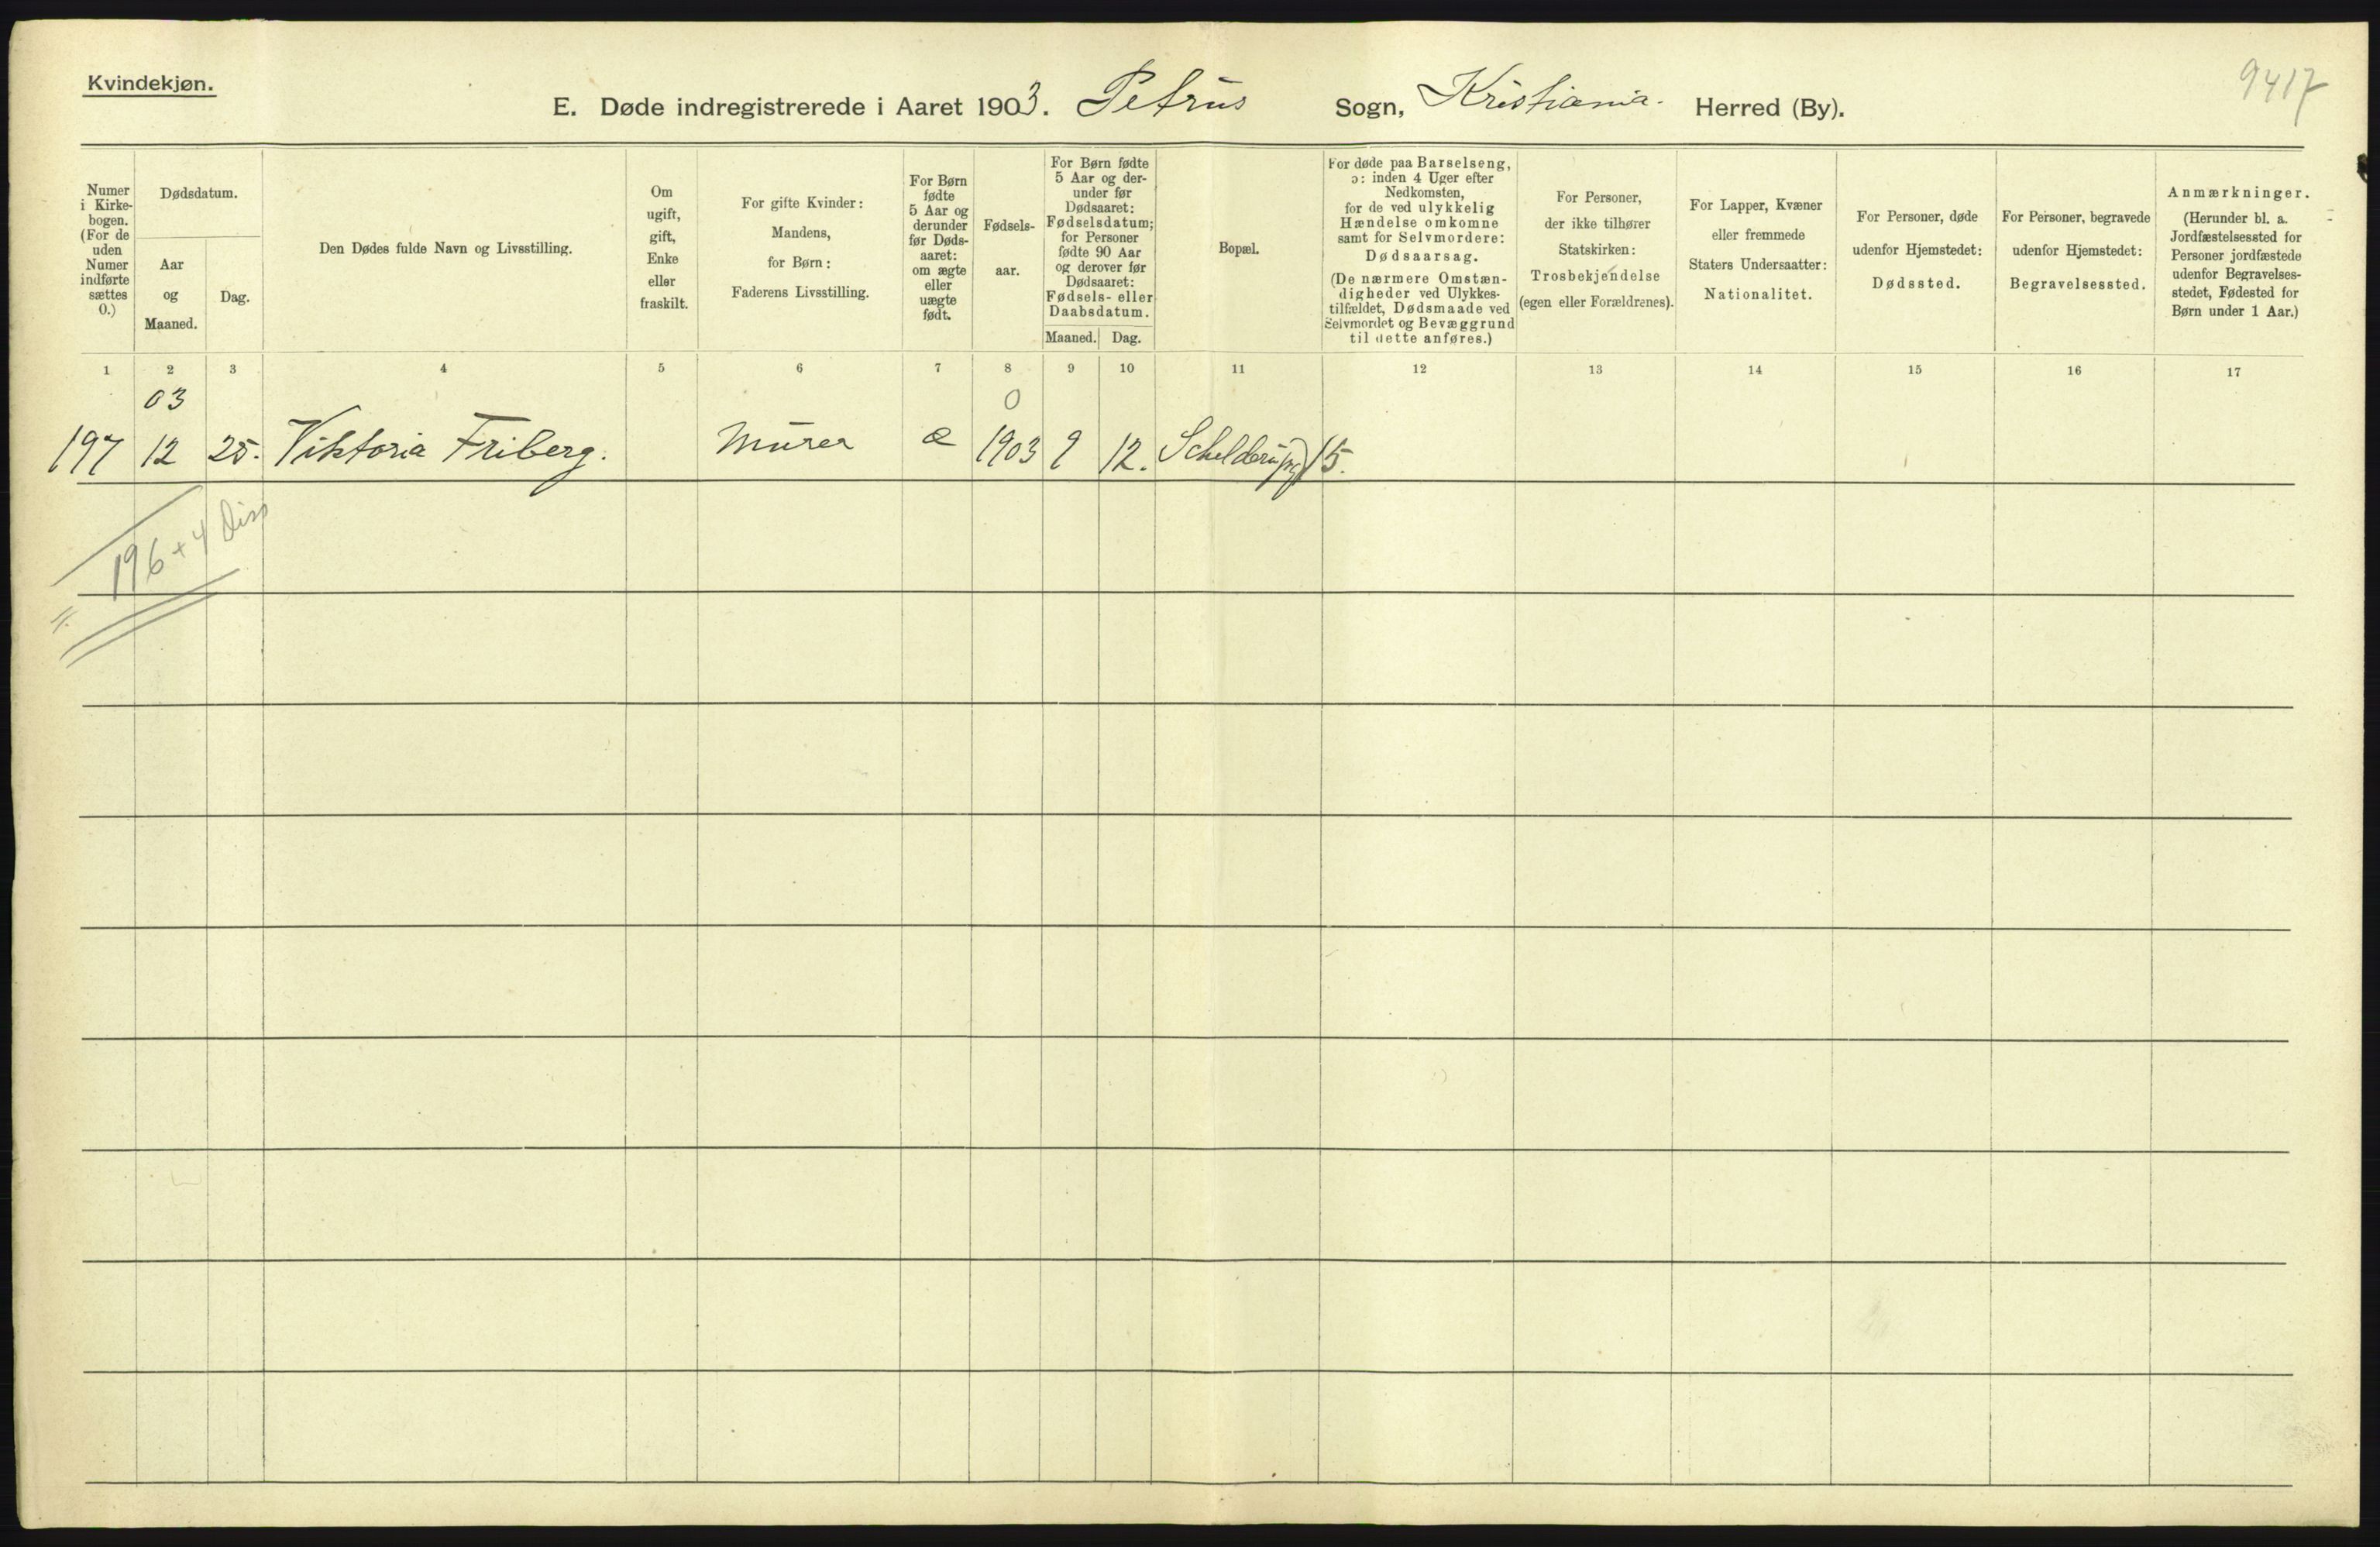 Kvindekjøn.
E. Døde indregistrerede i Aaret 1903. Petrus Sogn, Kristiania. Herred (By).
9417
Numer
i Kirke-
bogen.
(For de
uden
Numer
indførte
sættes
0.)
Dødsdatum.
Aar
og
Maaned.
Dag.
Den Dødes fulde Navn og Livsstilling.
Om
ugift,
gift,
Enke
eller
fraskilt.
For gifte Kvinder:
Mandens,
for Børn:
Faderens Livsstilling.
For Børn
fødte
5 Aar og
derunder
før Døds-
aaret:
om ægte
eller
uægte
født.
Fødsels-
aar.
For Børn fødte
5 Aar og der-
under før
Dødsaaret:
Fødselsdatum;
for Personer
fødte 90 Aar
og derover før
Dødsaaret:
Fødsels- eller
Daabsdatum.
Maaned. Dag.
Bopæl.
For døde paa Barselseng,
ɔ: inden 4 Uger efter
Nedkomsten,
for de ved ulykkelig
Hændelse omkomne
samt for Selvmordere:
Dødsaarsag.
(De nærmere Omstæn-
digheder ved Ulykkes-
tilfældet, Dødsmaade ved
Selvmordet og Bevæggrund
til dette anføres.)
For Personer,
der ikke tilhører
Statskirken:
Trosbekjendelse
(egen eller Forældrenes).
For Lapper, Kvæner
eller fremmede
Staters Undersaatter:
Nationalitet.
For Personer, døde
udenfor Hjemstedet:
Dødssted.
For Personer, begravede
udenfor Hjemstedet:
Begravelsessted.
Anmærkninger.
(Herunder bl. a.
Jordfæstelsessted for
Personer jordfæstede
udenfor Begravelses-
stedet, Fødested for
Børn under 1 Aar.)
1 2 3 4 5 6 7 8 9 10 11 12 13 14 15 16 17
03 0
197 12 25. Viktoria Friberg. Murer æ 1903 9 12. 15.
196 + 4 Diss